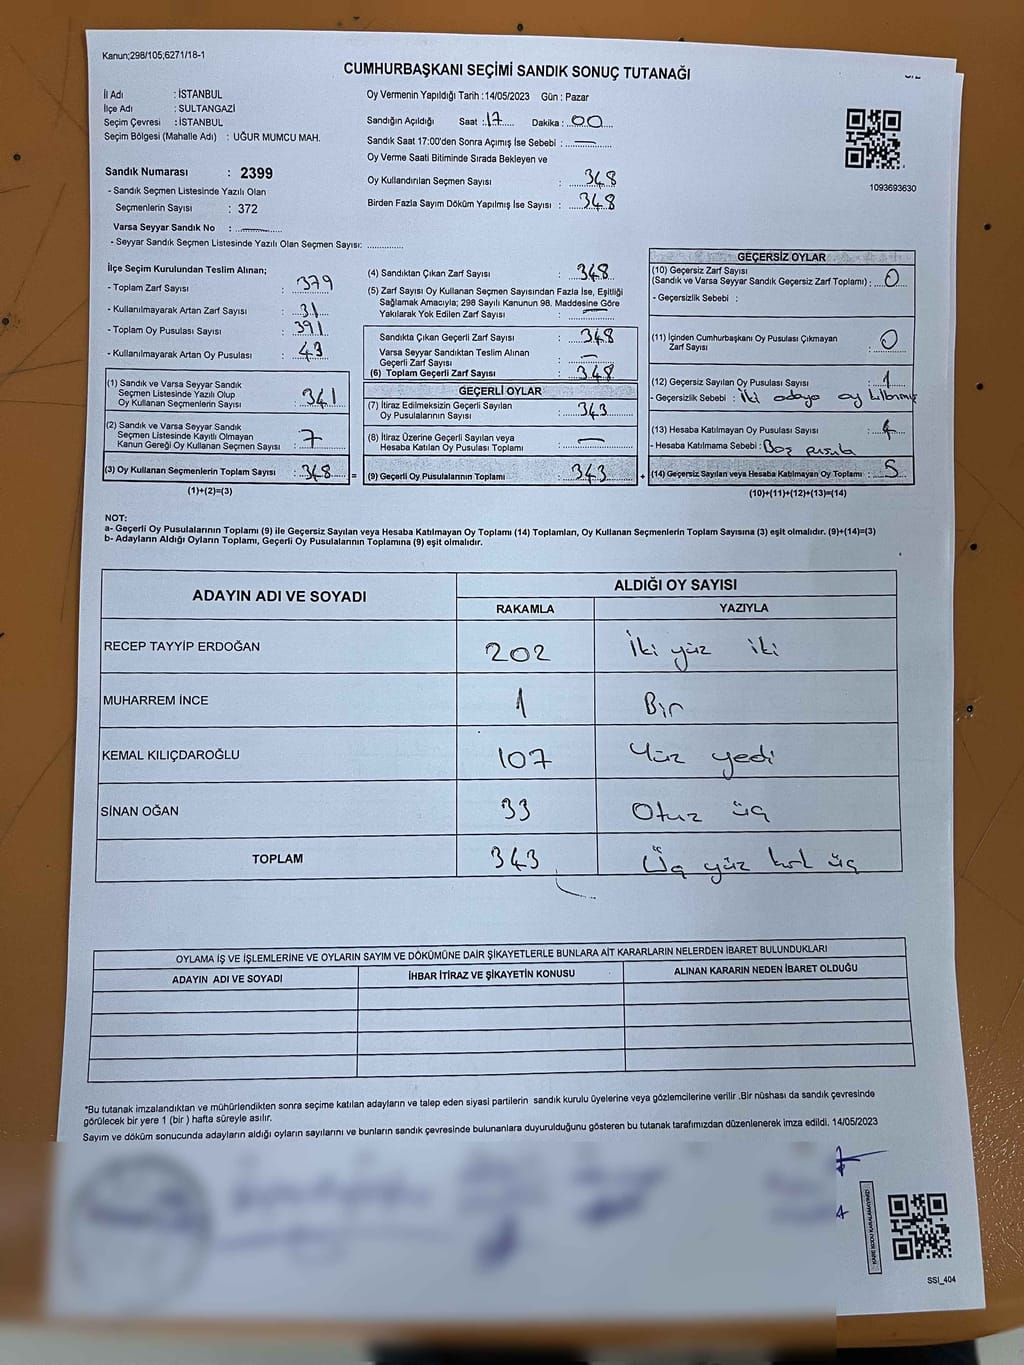 Kanun;298/105;6271/18-1
CUMHURBAŞKANI SEÇİMİ SANDIK SONUÇ TUTANAĞI
İl Adı : İSTANBUL
İlçe Adı : SULTANGAZİ
Seçim Çevresi : İSTANBUL
Seçim Bölgesi (Mahalle Adı) : UĞUR MUMCU MAH.
Sandık Numarası : 2399
- Sandık Seçmen Listesinde Yazılı Olan
Seçmenlerin Sayısı : 372
Varsa Seyyar Sandık No :
- Seyyar Sandık Seçmen Listesinde Yazılı Olan Seçmen Sayısı:
Oy Vermenin Yapıldığı Tarih :14/05/2023 Gün : Pazar
Sandığın Açıldığı Saat : 17 Dakika : 00
Sandık Saat 17:00'den Sonra Açımış İse Sebebi : —
Oy Verme Saati Bitiminde Sırada Bekleyen ve
Oy Kullandırılan Seçmen Sayısı : 348
Birden Fazla Sayım Döküm Yapılmış İse Sayısı : 348
1093693630
İlçe Seçim Kurulundan Teslim Alınan;
- Toplam Zarf Sayısı : 379
- Kullanılmayarak Artan Zarf Sayısı : 31
- Toplam Oy Pusulası Sayısı : 391
- Kullanılmayarak Artan Oy Pusulası : 43
(1) Sandık ve Varsa Seyyar Sandık
Seçmen Listesinde Yazılı Olup
Oy Kullanan Seçmenlerin Sayısı : 341
(2) Sandık ve Varsa Seyyar Sandık
Seçmen Listesinde Kayıtlı Olmayan
Kanun Gereği Oy Kullanan Seçmen Sayısı : 7
(3) Oy Kullanan Seçmenlerin Toplam Sayısı : 348
(1)+(2)=(3)
(4) Sandıktan Çıkan Zarf Sayısı : 348
(5) Zarf Sayısı Oy Kullanan Seçmen Sayısından Fazla İse, Eşitliği
Sağlamak Amacıyla; 298 Sayılı Kanunun 98. Maddesine Göre
Yakılarak Yok Edilen Zarf Sayısı : —
Sandıkta Çıkan Geçerli Zarf Sayısı : 348
Varsa Seyyar Sandıktan Teslim Alınan
Geçerli Zarf Sayısı : —
(6) Toplam Geçerli Zarf Sayısı : 348
GEÇERLİ OYLAR
(7) İtiraz Edilmeksizin Geçerli Sayılan
Oy Pusulalarının Sayısı : 343
(8) İtiraz Üzerine Geçerli Sayılan veya
Hesaba Katılan Oy Pusulası Toplamı : —
= (9) Geçerli Oy Pusulalarının Toplamı : 343
GEÇERSİZ OYLAR
(10) Geçersiz Zarf Sayısı
(Sandık ve Varsa Seyyar Sandık Geçersiz Zarf Toplamı) : 0
- Geçersizlik Sebebi :
(11) İçinden Cumhurbaşkanı Oy Pusulası Çıkmayan
Zarf Sayısı : 0
(12) Geçersiz Sayılan Oy Pusulası Sayısı : 1
- Geçersizlik Sebebi : İki adaya oy
(13) Hesaba Katılmayan Oy Pusulası Sayısı : 4
- Hesaba Katılmama Sebebi : Boş pusula
+ (14) Geçersiz Sayılan veya Hesaba Katılmayan Oy Toplamı : 5
(10)+(11)+(12)+(13)=(14)
NOT:
a- Geçerli Oy Pusulalarının Toplamı (9) ile Geçersiz Sayılan veya Hesaba Katılmayan Oy Toplamı (14) Toplamları, Oy Kullanan Seçmenlerin Toplam Sayısına (3) eşit olmalıdır. (9)+(14)=(3)
b- Adayların Aldığı Oyların Toplamı, Geçerli Oy Pusulalarının Toplamına (9) eşit olmalıdır.
ADAYIN ADI VE SOYADI
ALDIĞI OY SAYISI
RAKAMLA YAZIYLA
RECEP TAYYİP ERDOĞAN 202 İki yüz iki
MUHARREM İNCE 1 Bir
KEMAL KILIÇDAROĞLU 107 Yüz yedi
SİNAN OĞAN 33 Otuz üç
TOPLAM 343 Üç yüz kırk üç
OYLAMA İŞ VE İŞLEMLERİNE VE OYLARIN SAYIM VE DÖKÜMÜNE DAİR ŞİKAYETLERLE BUNLARA AİT KARARLARIN NELERDEN İBARET BULUNDUKLARI
ADAYIN ADI VE SOYADI İHBAR İTİRAZ VE ŞİKAYETİN KONUSU ALINAN KARARIN NEDEN İBARET OLDUĞU
*Bu tutanak imzalandıktan ve mühürlendikten sonra seçime katılan adayların ve talep eden siyasi partilerin sandık kurulu üyelerine veya gözlemcilerine verilir .Bir nüshası da sandık çevresinde
görülecek bir yere 1 (bir ) hafta süreyle asılır.
Sayım ve döküm sonucunda adayların aldığı oyların sayılarını ve bunların sandık çevresinde bulunanlara duyurulduğunu gösteren bu tutanak tarafımızdan düzenlenerek imza edildi. 14/05/2023
KARE KODU KARALAMAYINIZ!
SSI_404